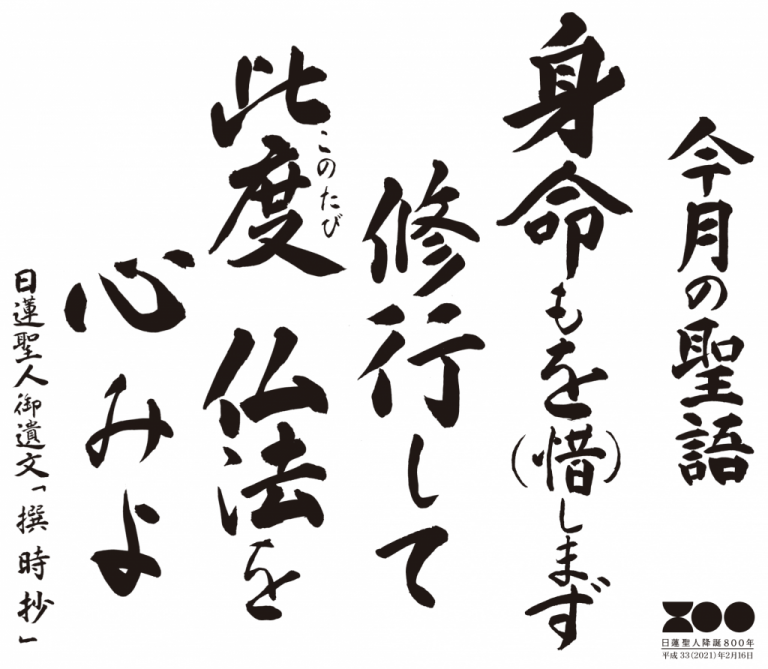 今月の聖語
身命もを(惜)しまず
修行して
此度 仏法を
このたび
心みよ
日蓮聖人御遺文「撰時抄」
800
日蓮聖人降誕800年
平成33(2021)年2月16日